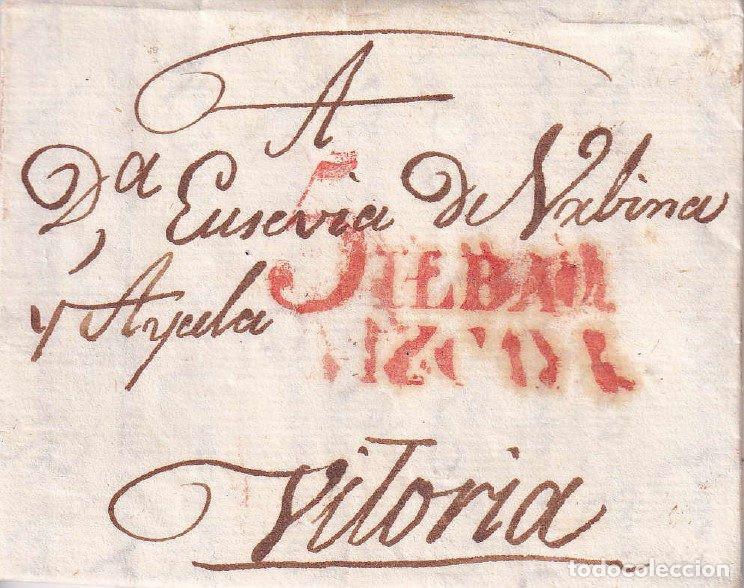 A
Dª Eusevia de Vrbina
5
y Ayala
BILBAO
VIZCAYA
Vitoria
todocoleccion